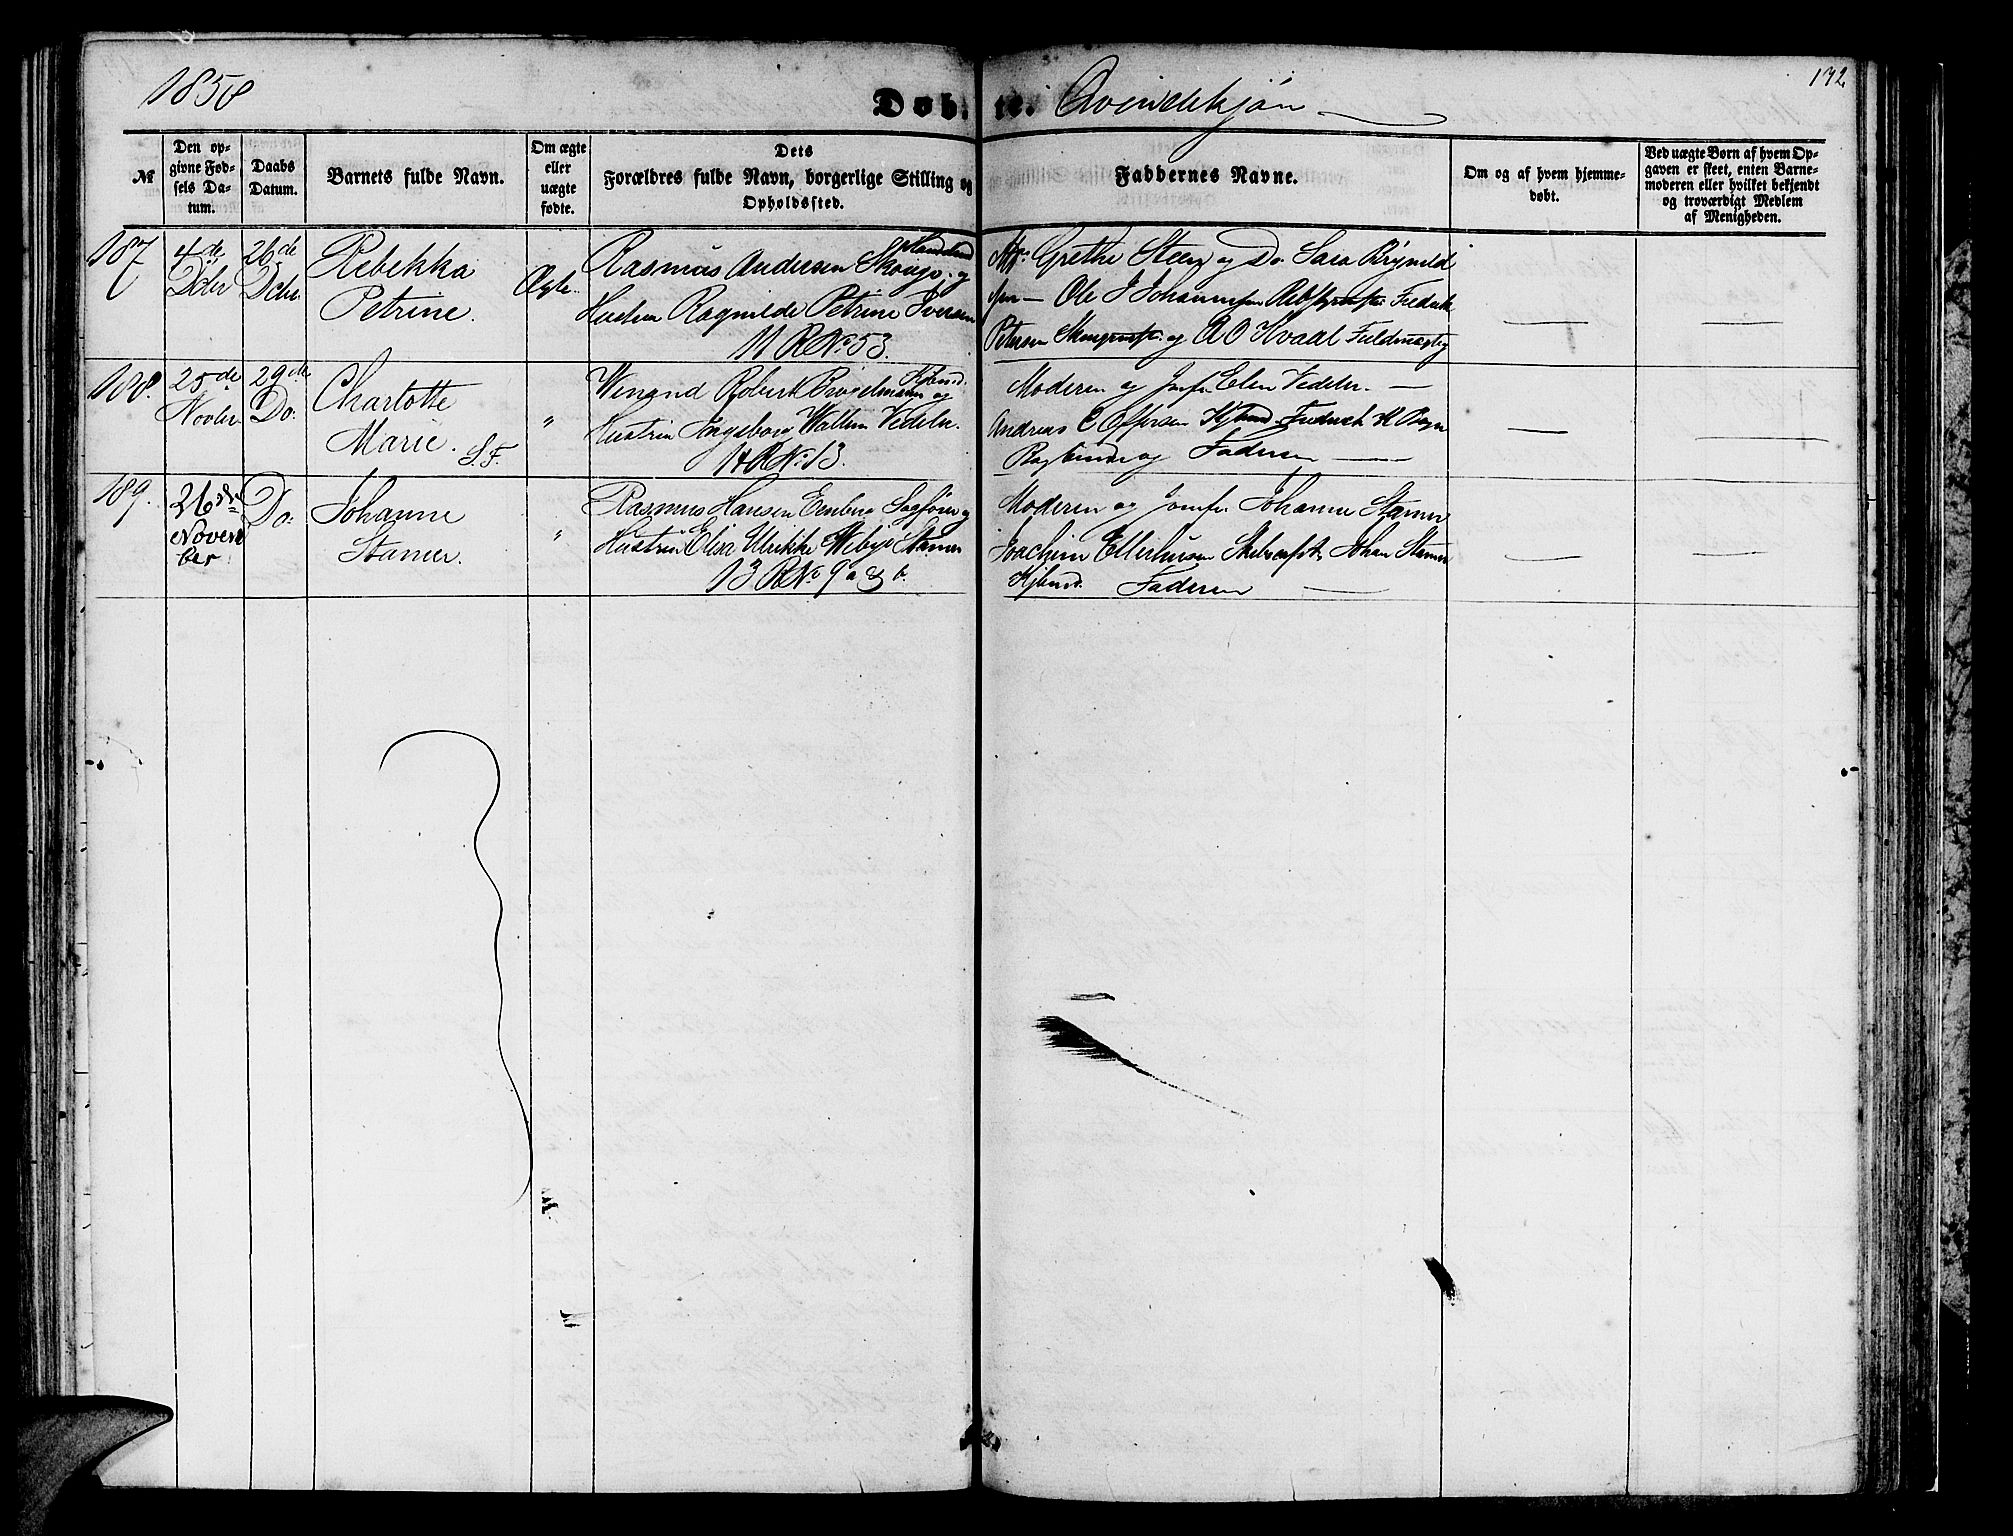 1858
Døb- te. Qvindekjøn
132
№
Den op-
givne Fød-
sels Da-
tum.
Daabs
Datum.
Barnets fulde Navn.
Om ægte
eller
uægte
fødte.
Dets
Forældres fulde Navn, borgerlige Stilling og
Opholdssted.
Faddernes Navne.
Om og af hvem hjemme-
døbt.
Ved uægte Børn af hvem Op-
gaven er skeet, enten Barne-
moderen eller hvilket bekjendt
og troværdigt Medlem
af Menigheden.
187
4de
Dcbr
26de
Dcbr.
Rebekka
Petrine.
Ægte
Rasmus Andersen og
Hustru Ragnilde Petrine Iversen
11 R No 53.
Grethe Steen og Do. Sara
Ole J Johannesen Fredrik
Petersen og A O Kvaal Fuldmægtig
188.
25de
Novbr
29de
Do.
Charlotte
Marie. S.F.
"
Winand Robert Kjbmd. og
Hustru Ingeborg Wallem Vedeler.
14 R No 13.
Moderen og Jomfr Elen Vedeler. —
Andreas C Offersen Kjbmd. Fredrich H
og Faderen —
189.
26de
Novem
ber
Do:
Johanne
Stamer.
"
Rasmus Hansen Sagfører og
Hustru Elisa Ulrikke Wibye Stamer
13 R No 9 a & b.
Moderen og Jomfr. Johanne Stamer
Joachim Ellerhusen Johan Stamer
Kjbmd. Faderen —